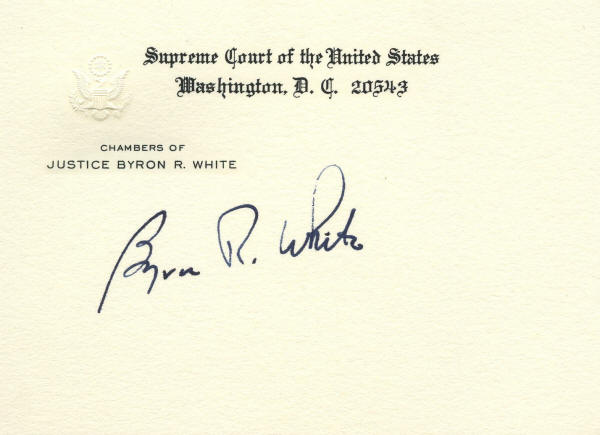 Supreme Court of the United States
Washington, D. C. 20543
CHAMBERS OF
JUSTICE BYRON R. WHITE
Byron R. White